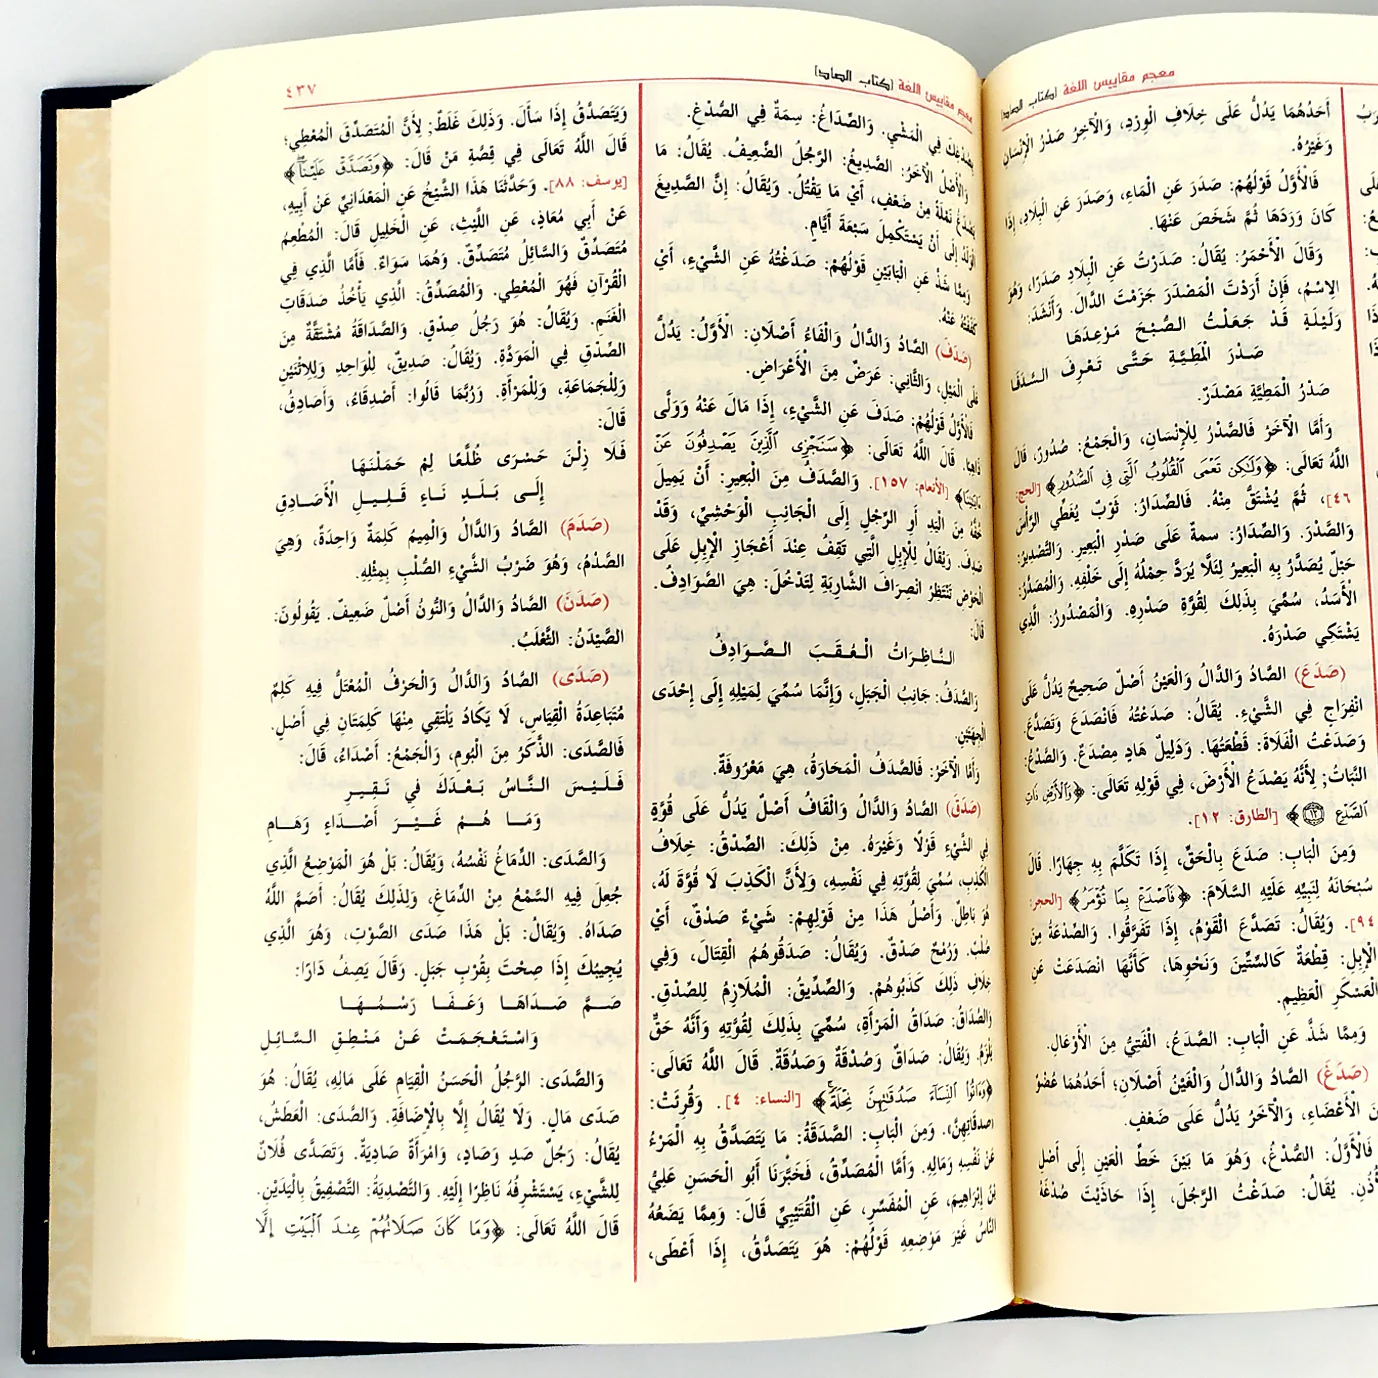 معجم مقاييس اللغة (كتاب الصاد)
أَحَدُهُمَا يَدُلُّ عَلَى خِلَافِ الْوِرْدِ، وَالْآخَرُ صَدْرُ الْإِنْسَانِ
وَغَيْرُهُ.
فَالْأَوَّلُ قَوْلُهُمْ: صَدَرَ عَنِ الْمَاءِ، وَصَدَرَ عَنِ الْبِلَادِ، إِذَا
كَانَ وَرَدَهَا ثُمَّ شَخَصَ عَنْهَا.
وَقَالَ الْأَحْمَرُ: يُقَالُ: صَدَرْتُ عَنِ الْبِلَادِ صَدَرًا، وَهُوَ
الِاسْمُ، فَإِنْ أَرَدْتَ الْمَصْدَرَ جَزَمْتَ الدَّالَ. وَأَنْشَدَ:
وَلَيْلَةٍ قَدْ جَعَلْتُ الصُّبْحَ مَوْعِدَهَا
صَدْرَ الْمَطِيَّةِ حَتَّى تَعْرِفَ السَّدَفَا
صَدْرُ الْمَطِيَّةِ مَصْدَرٌ.
وَأَمَّا الْآخَرُ فَالصَّدْرُ لِلْإِنْسَانِ، وَالْجَمْعُ: صُدُورٌ، قَالَ
اللَّهُ تَعَالَى: ﴿وَلَٰكِن تَعْمَى ٱلْقُلُوبُ ٱلَّتِى فِى ٱلصُّدُورِ﴾ [الحج:
٤٦]، ثُمَّ يُشْتَقُّ مِنْهُ. فَالصِّدَارُ: ثَوْبٌ يُغَطِّي الرَّأْسَ
وَالصَّدْرَ. وَالصِّدَارُ: سِمَةٌ عَلَى صَدْرِ الْبَعِيرِ. وَالتَّصْدِيرُ:
حَبْلٌ يُصَدَّرُ بِهِ الْبَعِيرُ لِئَلَّا يُرَدَّ حِمْلُهُ إِلَى خَلْفِهِ. وَالْمُصَدَّرُ:
الْأَسَدُ، سُمِّيَ بِذَلِكَ لِقُوَّةِ صَدْرِهِ. وَالْمَصْدُورُ: الَّذِي
يَشْتَكِي صَدْرَهُ.
(صَدَعَ) الصَّادُ وَالدَّالُ وَالْعَيْنُ أَصْلٌ صَحِيحٌ يَدُلُّ عَلَى
انْفِرَاجٍ فِي الشَّيْءِ. يُقَالُ: صَدَعْتُهُ فَانْصَدَعَ وَتَصَدَّعَ.
وَصَدَعْتُ الْفَلَاةَ: قَطَعْتُهَا. وَدَلِيلٌ هَادٍ مِصْدَعٌ. وَالصَّدْعُ:
النَّبَاتُ; لِأَنَّهُ يَصْدَعُ الْأَرْضَ، فِي قَوْلِهِ تَعَالَى: ﴿وَٱلْأَرْضِ ذَاتِ
ٱلصَّدْعِ ١٢﴾ [الطارق: ١٢].
وَمِنَ الْبَابِ: صَدَعَ بِالْحَقِّ، إِذَا تَكَلَّمَ بِهِ جِهَارًا. قَالَ
سُبْحَانَهُ لِنَبِيِّهِ عَلَيْهِ السَّلَامُ: ﴿فَٱصْدَعْ بِمَا تُؤْمَرُ﴾ [الحجر:
٩٤]. وَيُقَالُ: تَصَدَّعَ الْقَوْمُ، إِذَا تَفَرَّقُوا. وَالصِّدْعَةُ مِنَ
الْإِبِلِ: قِطْعَةٌ كَالسِّتِّينَ وَنَحْوِهَا، كَأَنَّهَا انْصَدَعَتْ عَنِ
الْعَسْكَرِ الْعَظِيمِ.
وَمِمَّا شَذَّ عَنِ الْبَابِ: الصَّدَعُ، الْفَتِيُّ مِنَ الْأَوْعَالِ.
(صَدَغَ) الصَّادُ وَالدَّالُ وَالْغَيْنُ أَصْلَانِ; أَحَدُهُمَا عُضْوٌ
مِنَ الْأَعْضَاءِ، وَالْآخَرُ يَدُلُّ عَلَى ضَعْفٍ.
فَالْأَوَّلُ: الصُّدْغُ، وَهُوَ مَا بَيْنَ خَطِّ الْعَيْنِ إِلَى أَصْلِ
الْأُذُنِ. يُقَالُ: صَدَغْتُ الرَّجُلَ، إِذَا حَاذَيْتَ صُدْغَهُ
معجم مقاييس اللغة (كتاب الصاد)
بِصُدْغِكَ فِي الْمَشْيِ. وَالصِّدَاغُ: سِمَةٌ فِي الصُّدْغِ.
وَالْأَصْلُ الْآخَرُ: الصَّدِيغُ: الرَّجُلُ الضَّعِيفُ. يُقَالُ: مَا
يَصْدَغُ نَمْلَةً مِنْ ضَعْفٍ، أَيْ مَا يَقْتُلُ. وَيُقَالُ: إِنَّ الصَّدِيغَ
الْوَلَدُ إِلَى أَنْ يَسْتَكْمِلَ سَبْعَةَ أَيَّامٍ.
وَمِمَّا شَذَّ عَنِ الْبَابَيْنِ قَوْلُهُمْ: صَدَغْتُهُ عَنِ الشَّيْءِ، أَيْ
كَفَفْتُهُ عَنْهُ.
(صَدَفَ) الصَّادُ وَالدَّالُ وَالْفَاءُ أَصْلَانِ: الْأَوَّلُ: يَدُلُّ
عَلَى الْمَيْلِ، وَالثَّانِي: عَرَضٌ مِنَ الْأَعْرَاضِ.
فَالْأَوَّلُ قَوْلُهُمْ: صَدَفَ عَنِ الشَّيْءِ، إِذَا مَالَ عَنْهُ وَوَلَّى
ذَاهِبًا. قَالَ اللَّهُ تَعَالَى: ﴿سَنَجْزِى ٱلَّذِينَ يَصْدِفُونَ عَنْ
ءَايَٰتِنَا﴾ [الأنعام: ١٥٧]. وَالصَّدَفُ مِنَ الْبَعِيرِ: أَنْ يَمِيلَ
خُفُّهُ مِنَ الْيَدِ أَوِ الرِّجْلِ إِلَى الْجَانِبِ الْوَحْشِيِّ، وَقَدْ
صَدِفَ. وَيُقَالُ لِلْإِبِلِ الَّتِي تَقِفُ عِنْدَ أَعْجَازِ الْإِبِلِ عَلَى
الْحَوْضِ تَنْتَظِرُ انْصِرَافَ الشَّارِبَةِ لِتَدْخُلَ: هِيَ الصَّوَادِفُ.
قَالَ:
النَّاظِرَاتُ الْعُقَبَ الصَّوَادِفُ
وَالصَّدَفُ: جَانِبُ الْجَبَلِ، وَإِنَّمَا سُمِّيَ لِمَيْلِهِ إِلَى إِحْدَى
الْجِهَتَيْنِ.
وَأَمَّا الْآخَرُ: فَالصَّدَفُ الْمَحَارَةُ، هِيَ مَعْرُوفَةٌ.
(صَدَقَ) الصَّادُ وَالدَّالُ وَالْقَافُ أَصْلٌ يَدُلُّ عَلَى قُوَّةٍ
فِي الشَّيْءِ قَوْلًا وَغَيْرَهُ. مِنْ ذَلِكَ: الصِّدْقُ: خِلَافُ
الْكَذِبِ، سُمِّيَ لِقُوَّتِهِ فِي نَفْسِهِ، وَلِأَنَّ الْكَذِبَ لَا قُوَّةَ لَهُ،
هُوَ بَاطِلٌ. وَأَصْلُ هَذَا مِنْ قَوْلِهِمْ: شَيْءٌ صَدْقٌ، أَيْ
صُلْبٌ. وَرُمْحٌ صَدْقٌ. وَيُقَالُ: صَدَقُوهُمُ الْقِتَالَ، وَفِي
خِلَافِ ذَلِكَ كَذَبُوهُمْ. وَالصِّدِّيقُ: الْمُلَازِمُ لِلصِّدْقِ.
وَالصَّدَاقُ: صَدَاقُ الْمَرْأَةِ، سُمِّيَ بِذَلِكَ لِقُوَّتِهِ وَأَنَّهُ حَقٌّ
يَلْزَمُ. وَيُقَالُ: صَدَاقٌ وَصُدْقَةٌ وَصَدُقَةٌ. قَالَ اللَّهُ تَعَالَى:
﴿وَءَاتُوا۟ ٱلنِّسَآءَ صَدُقَٰتِهِنَّ نِحْلَةً﴾ [النساء: ٤]. وَقُرِئَتْ:
(صدقَاتِهِنَّ). وَمِنَ الْبَابِ: الصَّدَقَةُ: مَا يَتَصَدَّقُ بِهِ الْمَرْءُ
عَنْ نَفْسِهِ وَمَالِهِ. وَأَمَّا الْمُصَدِّقُ، فَخَبَّرَنَا أَبُو الْحَسَنِ عَلِيُّ
بْنُ إِبْرَاهِيمَ، عَنِ الْمُفَسِّرِ، عَنِ الْقُتَيْبِيِّ قَالَ: وَمِمَّا يَضَعُهُ
النَّاسُ غَيْرَ مَوْضِعِهِ قَوْلُهُمْ: هُوَ يَتَصَدَّقُ، إِذَا أَعْطَى،
٤٣٧
وَيَتَصَدَّقُ إِذَا سَأَلَ. وَذَلِكَ غَلَطٌ; لِأَنَّ الْمُتَصَدِّقَ الْمُعْطِي;
قَالَ اللَّهُ تَعَالَى فِي قِصَّةِ مَنْ قَالَ: ﴿وَتَصَدَّقْ عَلَيْنَآ﴾
[يوسف: ٨٨]. وَحَدَّثَنَا هَذَا الشَّيْخُ عَنِ الْمَعْدَانِيِّ عَنْ أَبِيهِ،
عَنْ أَبِي مُعَاذٍ، عَنِ اللَّيْثِ، عَنِ الْخَلِيلِ قَالَ: الْمُطْعِمُ
مُتَصَدِّقٌ وَالسَّائِلُ مُتَصَدِّقٌ. وَهُمَا سَوَاءٌ. فَأَمَّا الَّذِي فِي
الْقُرْآنِ فَهُوَ الْمُعْطِي. وَالْمُصَدِّقُ: الَّذِي يَأْخُذُ صَدَقَاتِ
الْغَنَمِ. وَيُقَالُ: هُوَ رَجُلُ صِدْقٍ. وَالصَّدَاقَةُ مُشْتَقَّةٌ مِنَ
الصِّدْقِ فِي الْمَوَدَّةِ. وَيُقَالُ: صَدِيقٌ، لِلْوَاحِدِ وَلِلِاثْنَيْنِ
وَلِلْجَمَاعَةِ، وَلِلْمَرْأَةِ. وَرُبَّمَا قَالُوا: أَصْدِقَاءُ، وَأَصَادِقُ،
قَالَ:
فَلَا زِلْنَ حَسْرَى ظُلَّعًا لِمْ حَمَلْنَهَا
إِلَى بَلَدٍ نَاءٍ قَلِيلِ الْأَصَادِقِ
(صَدَمَ) الصَّادُ وَالدَّالُ وَالْمِيمُ كَلِمَةٌ وَاحِدَةٌ، وَهِيَ
الصَّدْمُ، وَهُوَ ضَرْبُ الشَّيْءِ الصُّلْبِ بِمِثْلِهِ.
(صَدَنَ) الصَّادُ وَالدَّالُ وَالنُّونُ أَصْلٌ ضَعِيفٌ. يَقُولُونَ:
الصَّيْدَنُ: الثَّعْلَبُ.
(صَدَى) الصَّادُ وَالدَّالُ وَالْحَرْفُ الْمُعْتَلُّ فِيهِ كَلِمٌ
مُتَبَاعِدَةُ الْقِيَاسِ، لَا يَكَادُ يَلْتَقِي مِنْهَا كَلِمَتَانِ فِي أَصْلٍ.
فَالصَّدَى: الذَّكَرُ مِنَ الْبُومِ، وَالْجَمْعُ: أَصْدَاءُ، قَالَ:
فَلَيْسَ النَّاسُ بَعْدَكَ فِي نَقِيرٍ
وَمَا هُمْ غَيْرَ أَصْدَاءٍ وَهَامِ
وَالصَّدَى: الدِّمَاغُ نَفْسُهُ، وَيُقَالُ: بَلْ هُوَ الْمَوْضِعُ الَّذِي
جُعِلَ فِيهِ السَّمْعُ مِنَ الدِّمَاغِ، وَلِذَلِكَ يُقَالُ: أَصَمَّ اللَّهُ
صَدَاهُ. وَيُقَالُ: بَلْ هَذَا صَدَى الصَّوْتِ، وَهُوَ الَّذِي
يُجِيبُكَ إِذَا صِحْتَ بِقُرْبِ جَبَلٍ. وَقَالَ يَصِفُ دَارًا:
صَمَّ صَدَاهَا وَعَفَا رَسْمُهَا
وَاسْتَعْجَمَتْ عَنْ مَنْطِقِ السَّائِلِ
وَالصَّدَى: الرَّجُلُ الْحَسَنُ الْقِيَامِ عَلَى مَالِهِ، يُقَالُ: هُوَ
صَدَى مَالٍ. وَلَا يُقَالُ إِلَّا بِالْإِضَافَةِ. وَالصَّدَى: الْعَطَشُ،
يُقَالُ: رَجُلٌ صَدٍ وَصَادٍ، وَامْرَأَةٌ صَادِيَةٌ. وَتَصَدَّى فُلَانٌ
لِلشَّيْءِ، يَسْتَشْرِفُهُ نَاظِرًا إِلَيْهِ. وَالتَّصْدِيَةُ: التَّصْفِيقُ بِالْيَدَيْنِ.
قَالَ اللَّهُ تَعَالَى: ﴿وَمَا كَانَ صَلَاتُهُمْ عِندَ ٱلْبَيْتِ إِلَّا